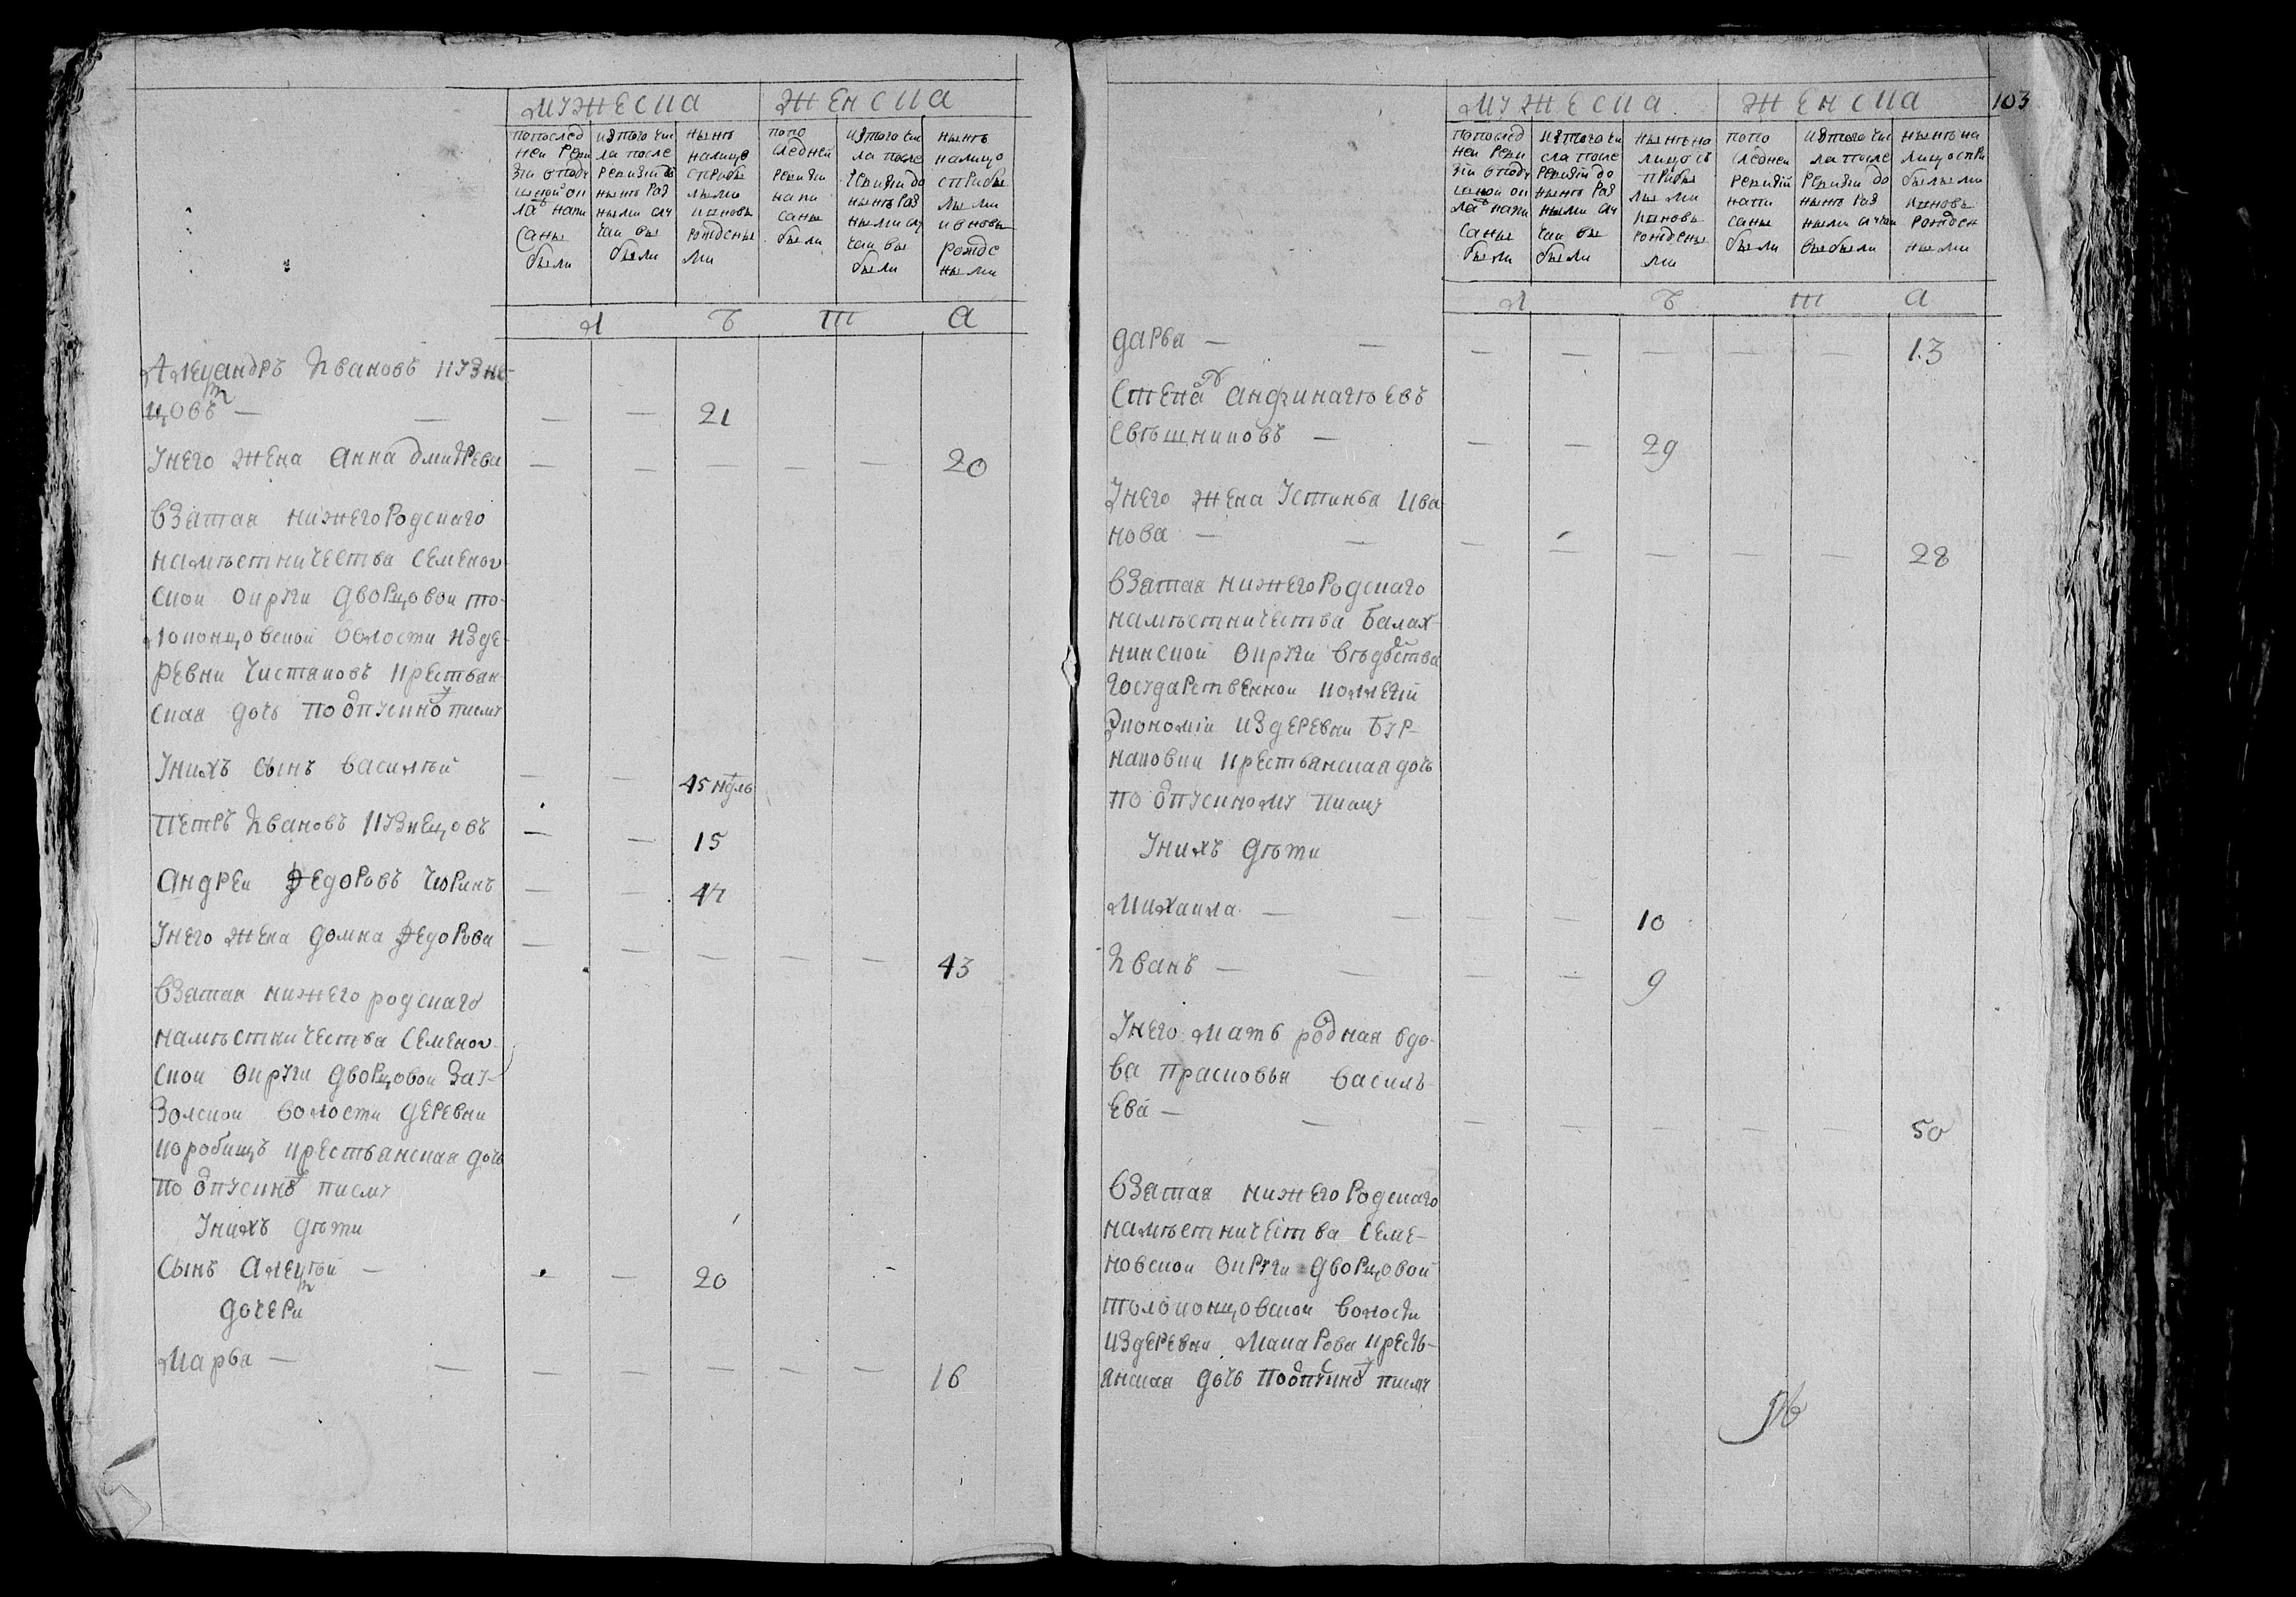 мужеска женска
попослед неи реви зіи сподушной ок лада напи саны были
изтого чис ла после ревизіи до нынѣ раз ными слу чаи вы были
нынѣ налицо сприбы лыми ивновь рожденны ми
попо следней ревизіи напи саны были
изтого чис ла после ревизіи до нынѣ раз ными слу чаи вы были
нынѣ налицо сприбы лыми ивновь рожде ными
л ѣ т а
Алеѯандръ Ивановъ кузне-
цовъ — — — — 21
Унего жена анна дмитрева — — — — — 20
взятая нижегородскаго
намѣстничества семенов
скои округи дворцовои то-
локонцовской волости изде
ревни чистаковъ крестьян
ская дочь по отпускно писму
Унихъ сынъ василѣй — — 45 нѣдль
Петръ Ивановъ кузнецовъ — — 15
андреи Федоровъ чюринъ — — 47
Унего жена домна Федорова — — — — — 43
взятая нижегородскаго
намѣстничества семенов
скои округи дворцовои зау-
золскои волости деревни
коробицъ крестьянская дочь
по отпускно писму
Унихъ дѣти
сынъ алеѯѣй — — — 20
дочери
марва — — — — — — — 16
103
мужеска женска
попослед ней реви зіи сподушной ок лада напи саны были
изтого чи сла после ревизіи до нынѣ раз ными слу чаи вы были
нынѣ на лицо съ прибы лыми ивновь рожденны ми
попо следнеи ревизіи напи саны были
изтого чис ла после ревизіи до нынѣ раз ными случаи выбыли
нынѣ на лицо спри былыми ивновь рожден ными
л ѣ т а
дарва — — — — — — — 13
Степанъ анфинагѣевъ
свѣшниковъ — — — 29
Унего жена Устинья ива
нова — — — — — — — 28
взятая нижегородскаго
намѣстничества балах
нинской округи вѣдомства
государственной коллегіи
экономіи издеревни бур-
наковки крестьянская дочь
по отпускному писму
Унихъ дѣти
михаила — — — — 10
Иванъ — — — — 9
Унего мать родная вдо-
ва прасковья василь
ева — — — — — — — 50
взятая нижегородскаго
намѣстничества семе-
новскои округи дворцовой
толоконцовской волости
издеревни макарова кресть-
янская дочь поотпускно писму